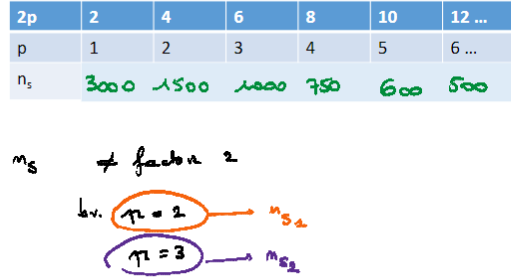 2p 2 4 6 8 10 12 ...
p 1 2 3 4 5 6 ...
ns 3000 1500 1000 750 600 500
ns ≠ factor 2
bv. p = 2 → ns1
p = 3 → ns2